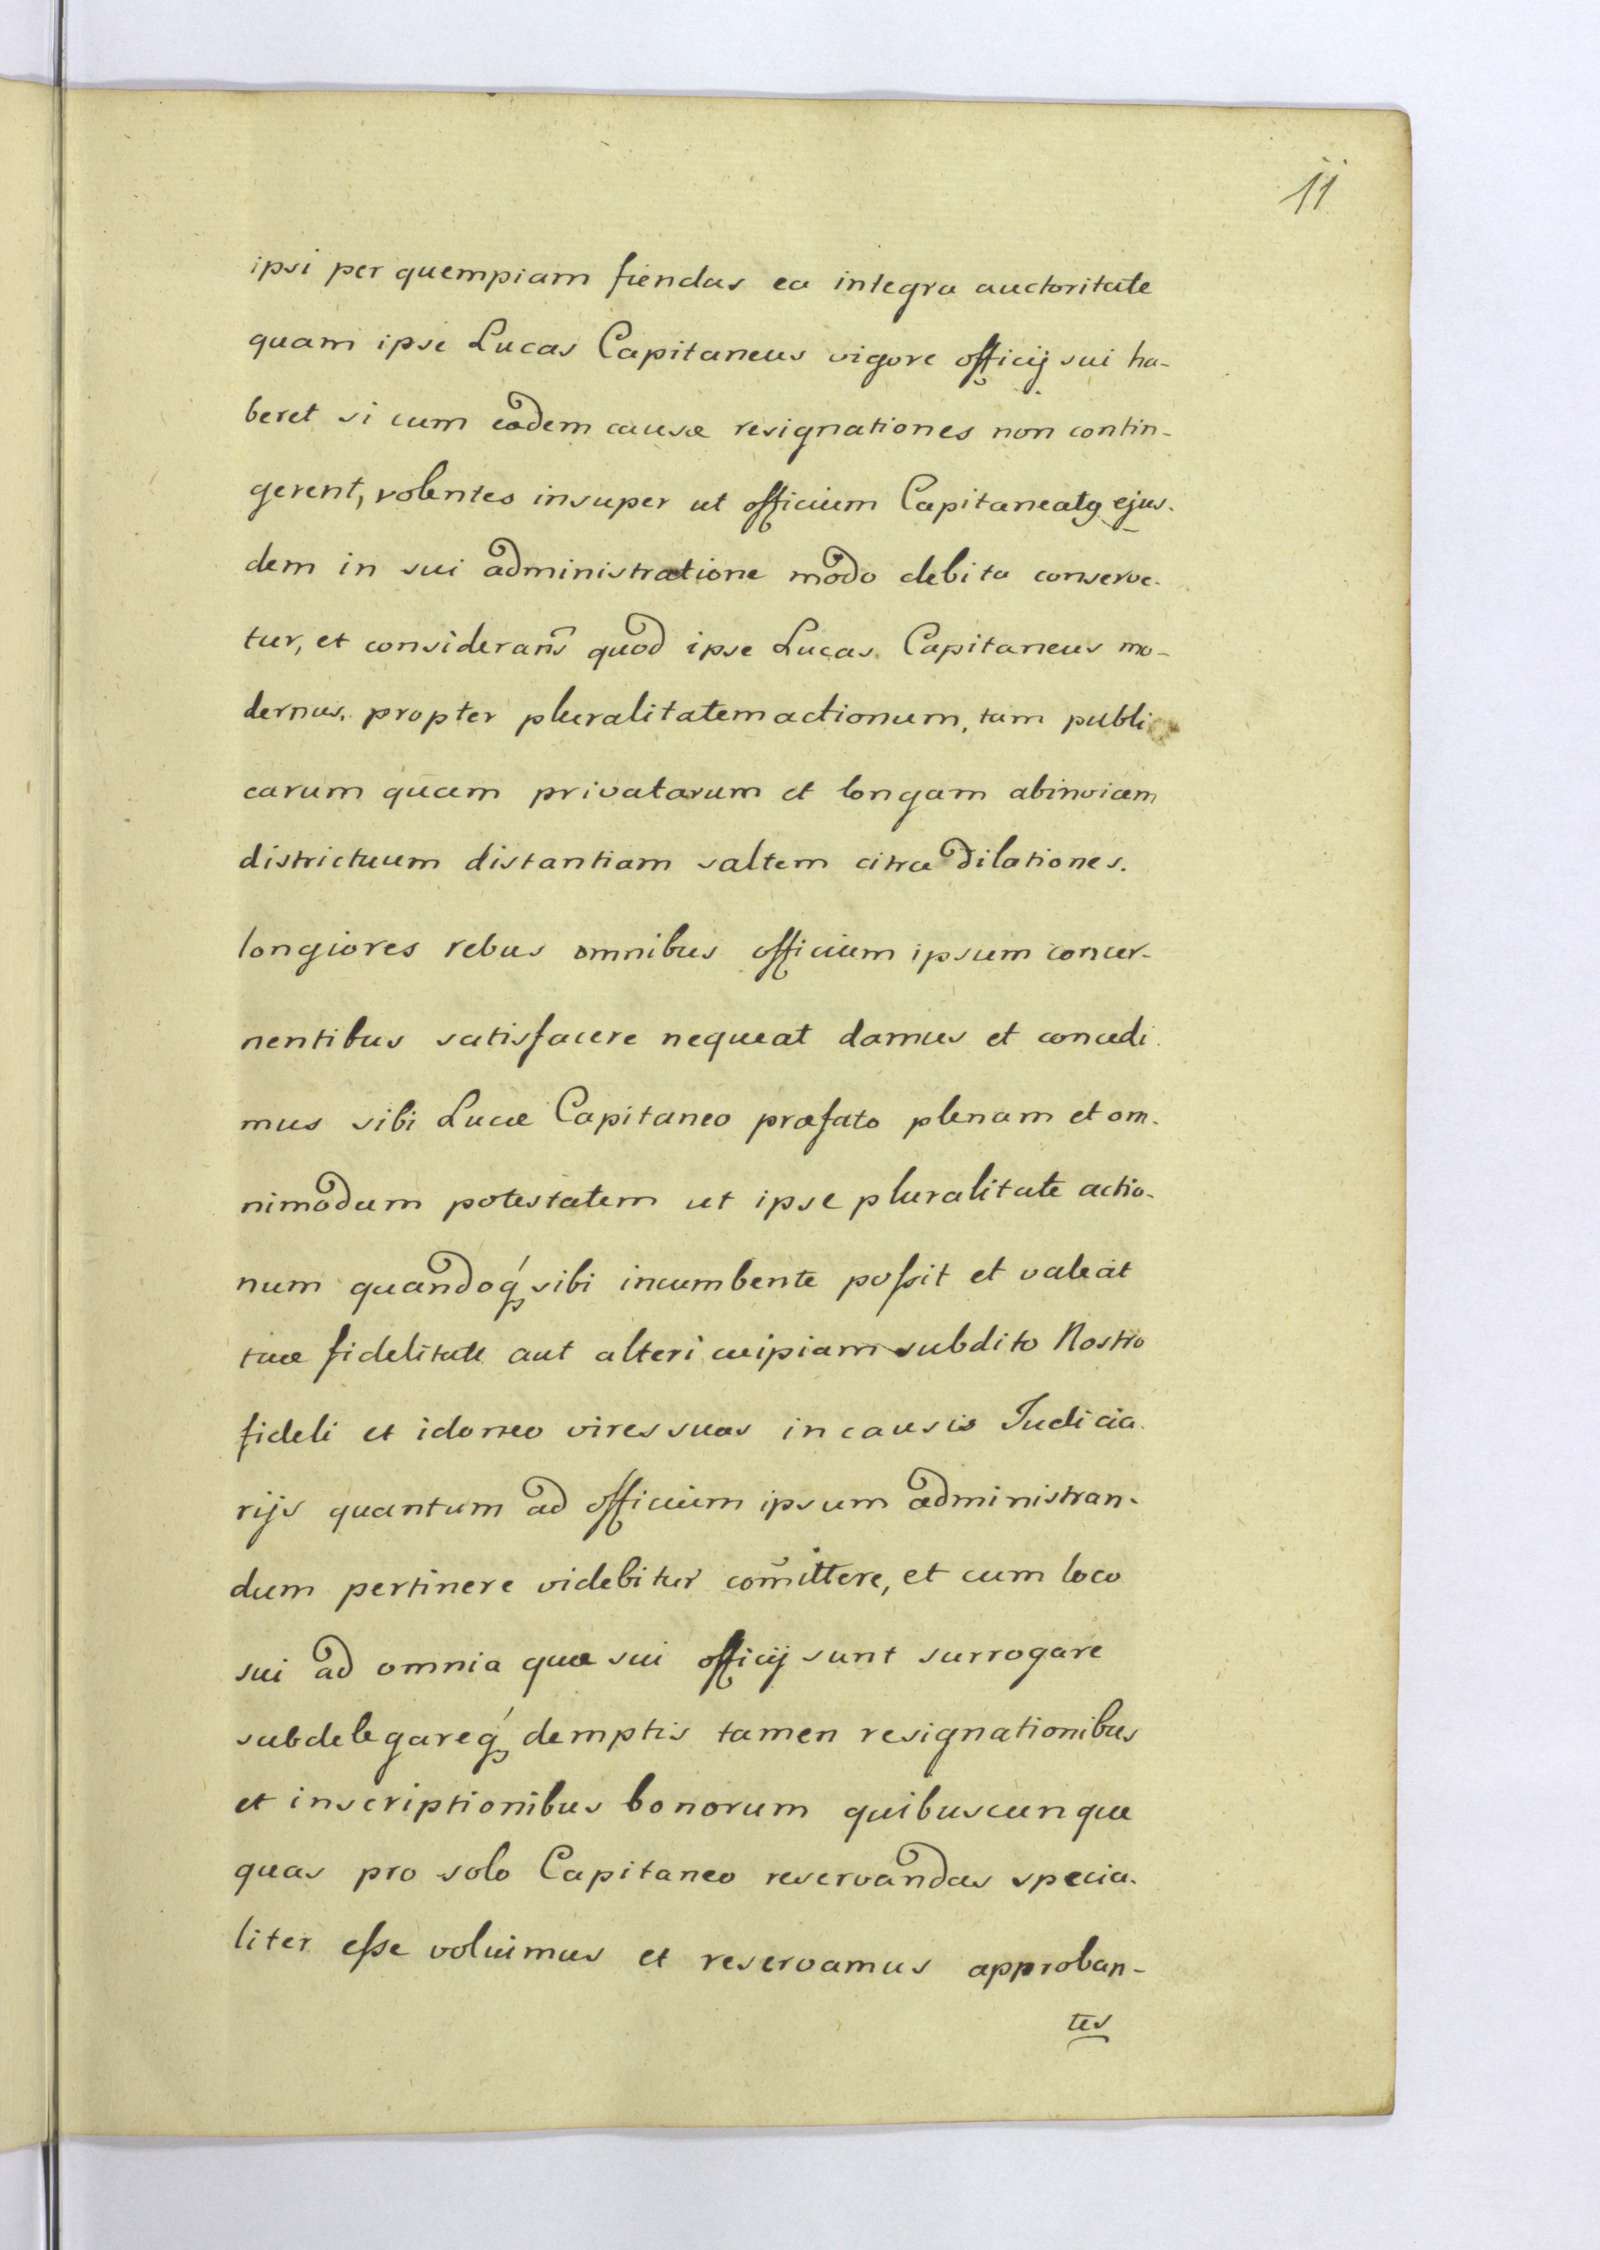 11
ipsi per quempiam fiendas ea integra auctoritate
quam ipse Lucas Capitaneus vigore officij sui ha-
beret si cum eadem causæ resignationes non contin-
gerent, volentes insuper ut officium Capitaneatq ejus-
dem in sui administratione modo debito conserve-
tur, et considerañs quod ipse Lucas Capitaneus mo-
dernus, propter pluralitatem actionum, tam publi
carum quam privatarum et longam abinviam
districtuum distantiam saltem citra dilationes.
longiores rebus omnibus officium ipsum concer-
nentibus satisfacere nequeat damus et concedi
mus sibi Lucæ Capitaneo præfato plenam et om-
nimodam potestatem ut ipse pluralitate actio-
num quandoq́ sibi incumbente poßit et valeat
tuæ fidelitate aut alteri cuipiam subdito Nostro
fideli et idoneo vires suas in causis Judicia-
rijs quantum ad officium ipsum administran-
dum pertinere videbitur com̃ittere, et cum loco
sui ad omnia quæ sui officij sunt surrogare
subdelegareq́ demptis tamen resignationibus
et inscriptionibus bonorum quibuscunque
quas pro solo Capitaneo reservandas specia-
liter eße voluimus et reservamus approban-
tes